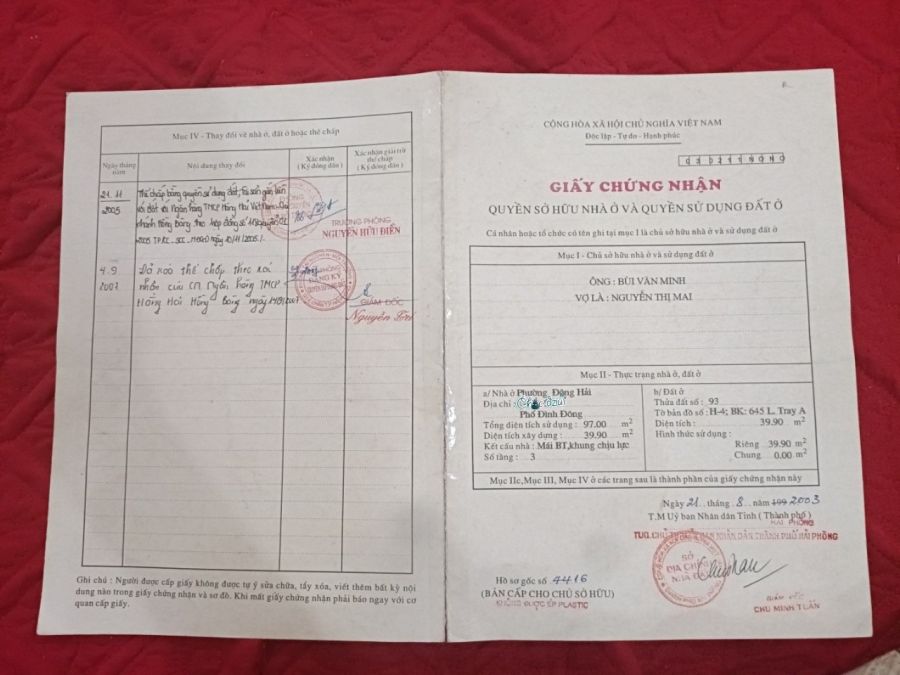 Mục IV - Thay đổi về nhà ở, đất ở hoặc thế chấp
Ngày tháng năm
Nội dung thay đổi
Xác nhận
( Ký đóng dấu )
Xác nhận giải trừ thế chấp
( Ký đóng dấu )
21. 11
2005
Thế chấp bằng quyền sử dụng đất, tài sản gắn liền
với đất với Ngân hàng TMCP Hàng Hải Việt Nam
nhánh Hồng Bàng theo hợp đồng số
ngày 10/11/2005/.
TRƯỞNG PHÒNG
NGUYỄN HỮU ĐIỂN
4. 9
2007
Đã xóa thế chấp theo xác
nhận của CN Ngân hàng TMCP
Hàng Hải Hồng Bàng ngày
ĐĂNG KÝ
GIÁM ĐỐC
Nguyễn
Ghi chú : Người được cấp giấy không được tự ý sửa chữa, tẩy xóa, viết thêm bất kỳ nội
dung nào trong giấy chứng nhận và sơ đồ. Khi mất giấy chứng nhận phải báo ngay với cơ
quan cấp giấy.
CỘNG HÒA XÃ HỘI CHỦ NGHĨA VIỆT NAM
Độc lập - Tự do - Hạnh phúc
GIẤY CHỨNG NHẬN
QUYỀN SỞ HỮU NHÀ Ở VÀ QUYỀN SỬ DỤNG ĐẤT Ở
Cá nhân hoặc tổ chức có tên ghi tại mục I là chủ sở hữu nhà ở và sử dụng đất ở
Mục I - Chủ sở hữu nhà ở và sử dụng đất ở
ÔNG : BÙI VĂN MINH
VỢ LÀ : NGUYỄN THỊ MAI
Mục II - Thực trạng nhà ở, đất ở
a/ Nhà ở Phường Đông Hải
Địa chỉ :
Phố Đình Đông
Tổng diện tích sử dụng : 97.00 m²
Diện tích xây dựng : 39.90 m²
Kết cấu nhà : Mái BT,khung chịu lực
Số tầng : 3
b/ Đất ở
Thửa đất số : 93
Tờ bản đồ số : H-4; BK: 645 L. Tray A
Diện tích : 39.90 m²
Hình thức sử dụng :
Riêng 39.90 m²
Chung 0.00 m²
Mục IIc,Mục III, Mục IV ở các trang sau là thành phần của giấy chứng nhận này
Ngày 21 tháng 8 năm 199 2003
T.M Uỷ ban Nhân dân Tỉnh ( Thành phố )
HẢI PHÒNG
TUQ. CHỦ TỊCH ỦY BAN NHÂN DÂN THÀNH PHỐ HẢI PHÒNG
SỞ
ĐỊA CHÍNH
NHÀ ĐẤT
Hồ sơ gốc số 4416
(BẢN CẤP CHO CHỦ SỞ HỮU)
KHÔNG ĐƯỢC ÉP PLASTIC
GIÁM ĐỐC
CHU MINH TUẤN